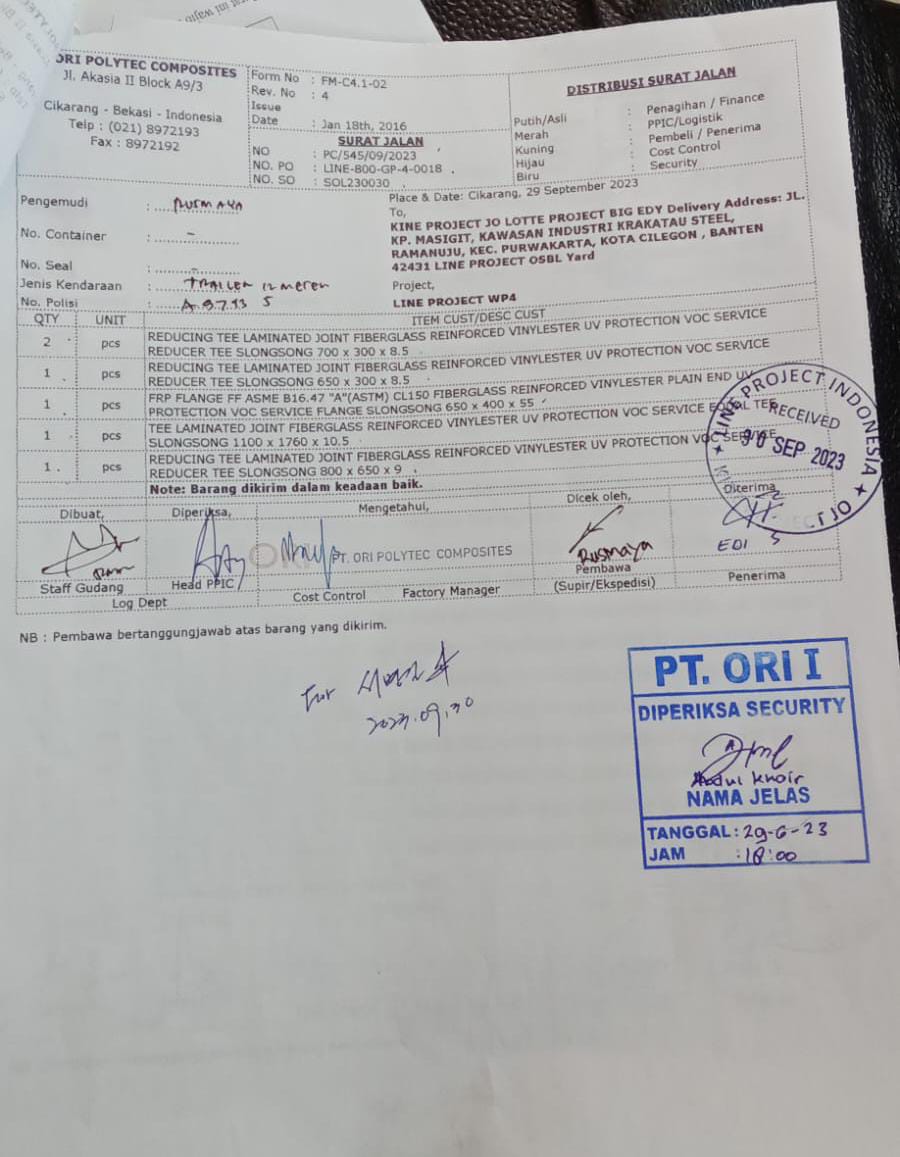 ORI POLYTEC COMPOSITES
Jl. Akasia II Block A9/3
Cikarang - Bekasi - Indonesia
Telp : (021) 8972193
Fax : 8972192
Form No : FM-C4.1-02
Rev. No : 4
Issue
Date : Jan 18th, 2016
SURAT JALAN
NO : PC/545/09/2023
NO. PO : LINE-800-GP-4-0018
NO. SO : SOL230030
DISTRIBUSI SURAT JALAN
Putih/Asli : Penagihan / Finance
Merah : PPIC/Logistik
Kuning : Pembeli / Penerima
Hijau : Cost Control
Biru : Security
Pengemudi : RUSMAYA
No. Container : -
No. Seal : -
Jenis Kendaraan : TRAILER 12 meter
No. Polisi :
Place & Date: Cikarang, 29 September 2023
To,
KINE PROJECT JO LOTTE PROJECT BIG EDY Delivery Address: JL.
KP. MASIGIT, KAWASAN INDUSTRI KRAKATAU STEEL,
RAMANUJU, KEC. PURWAKARTA, KOTA CILEGON , BANTEN
42431 LINE PROJECT OSBL Yard
Project,
LINE PROJECT WP4
QTY UNIT ITEM CUST/DESC CUST
2 pcs REDUCING TEE LAMINATED JOINT FIBERGLASS REINFORCED VINYLESTER UV PROTECTION VOC SERVICE
REDUCER TEE SLONGSONG 700 x 300 x 8.5
1 pcs REDUCING TEE LAMINATED JOINT FIBERGLASS REINFORCED VINYLESTER UV PROTECTION VOC SERVICE
REDUCER TEE SLONGSONG 650 x 300 x 8.5
1 pcs FRP FLANGE FF ASME B16.47 "A"(ASTM) CL150 FIBERGLASS REINFORCED VINYLESTER PLAIN END UV
PROTECTION VOC SERVICE FLANGE SLONGSONG 650 x 400 x 55
1 pcs TEE LAMINATED JOINT FIBERGLASS REINFORCED VINYLESTER UV PROTECTION VOC SERVICE EQUAL TEE
SLONGSONG 1100 x 1760 x 10.5
1 pcs REDUCING TEE LAMINATED JOINT FIBERGLASS REINFORCED VINYLESTER UV PROTECTION VOC SERVICE
REDUCER TEE SLONGSONG 800 x 650 x 9
Note: Barang dikirim dalam keadaan baik.
LINE PROJECT INDONESIA
RECEIVED
30 SEP 2023
Dibuat, Diperiksa, Mengetahui, Dicek oleh, Diterima
PT. ORI POLYTEC COMPOSITES
Rusmaya
EDI S
Staff Gudang Head PPIC Cost Control Factory Manager Pembawa
(Supir/Ekspedisi) Penerima
Log Dept
NB : Pembawa bertanggungjawab atas barang yang dikirim.
For
2023.09.30
PT. ORI I
DIPERIKSA SECURITY
Abdul Khoir
NAMA JELAS
TANGGAL : 29-6-23
JAM : 18:00